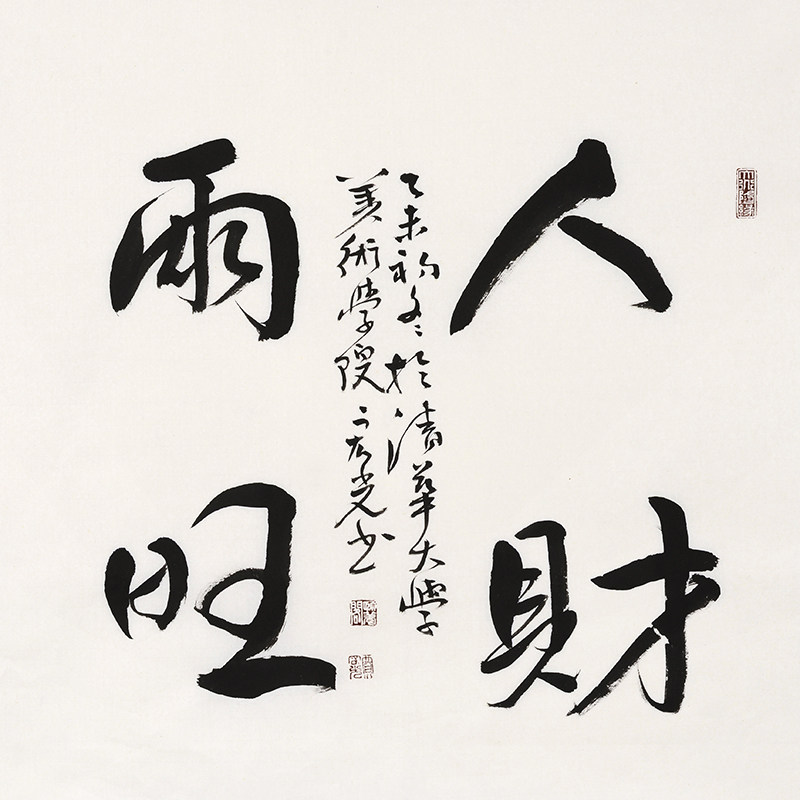 人財
兩旺
乙未初冬於清華大學
美術學院宏光书